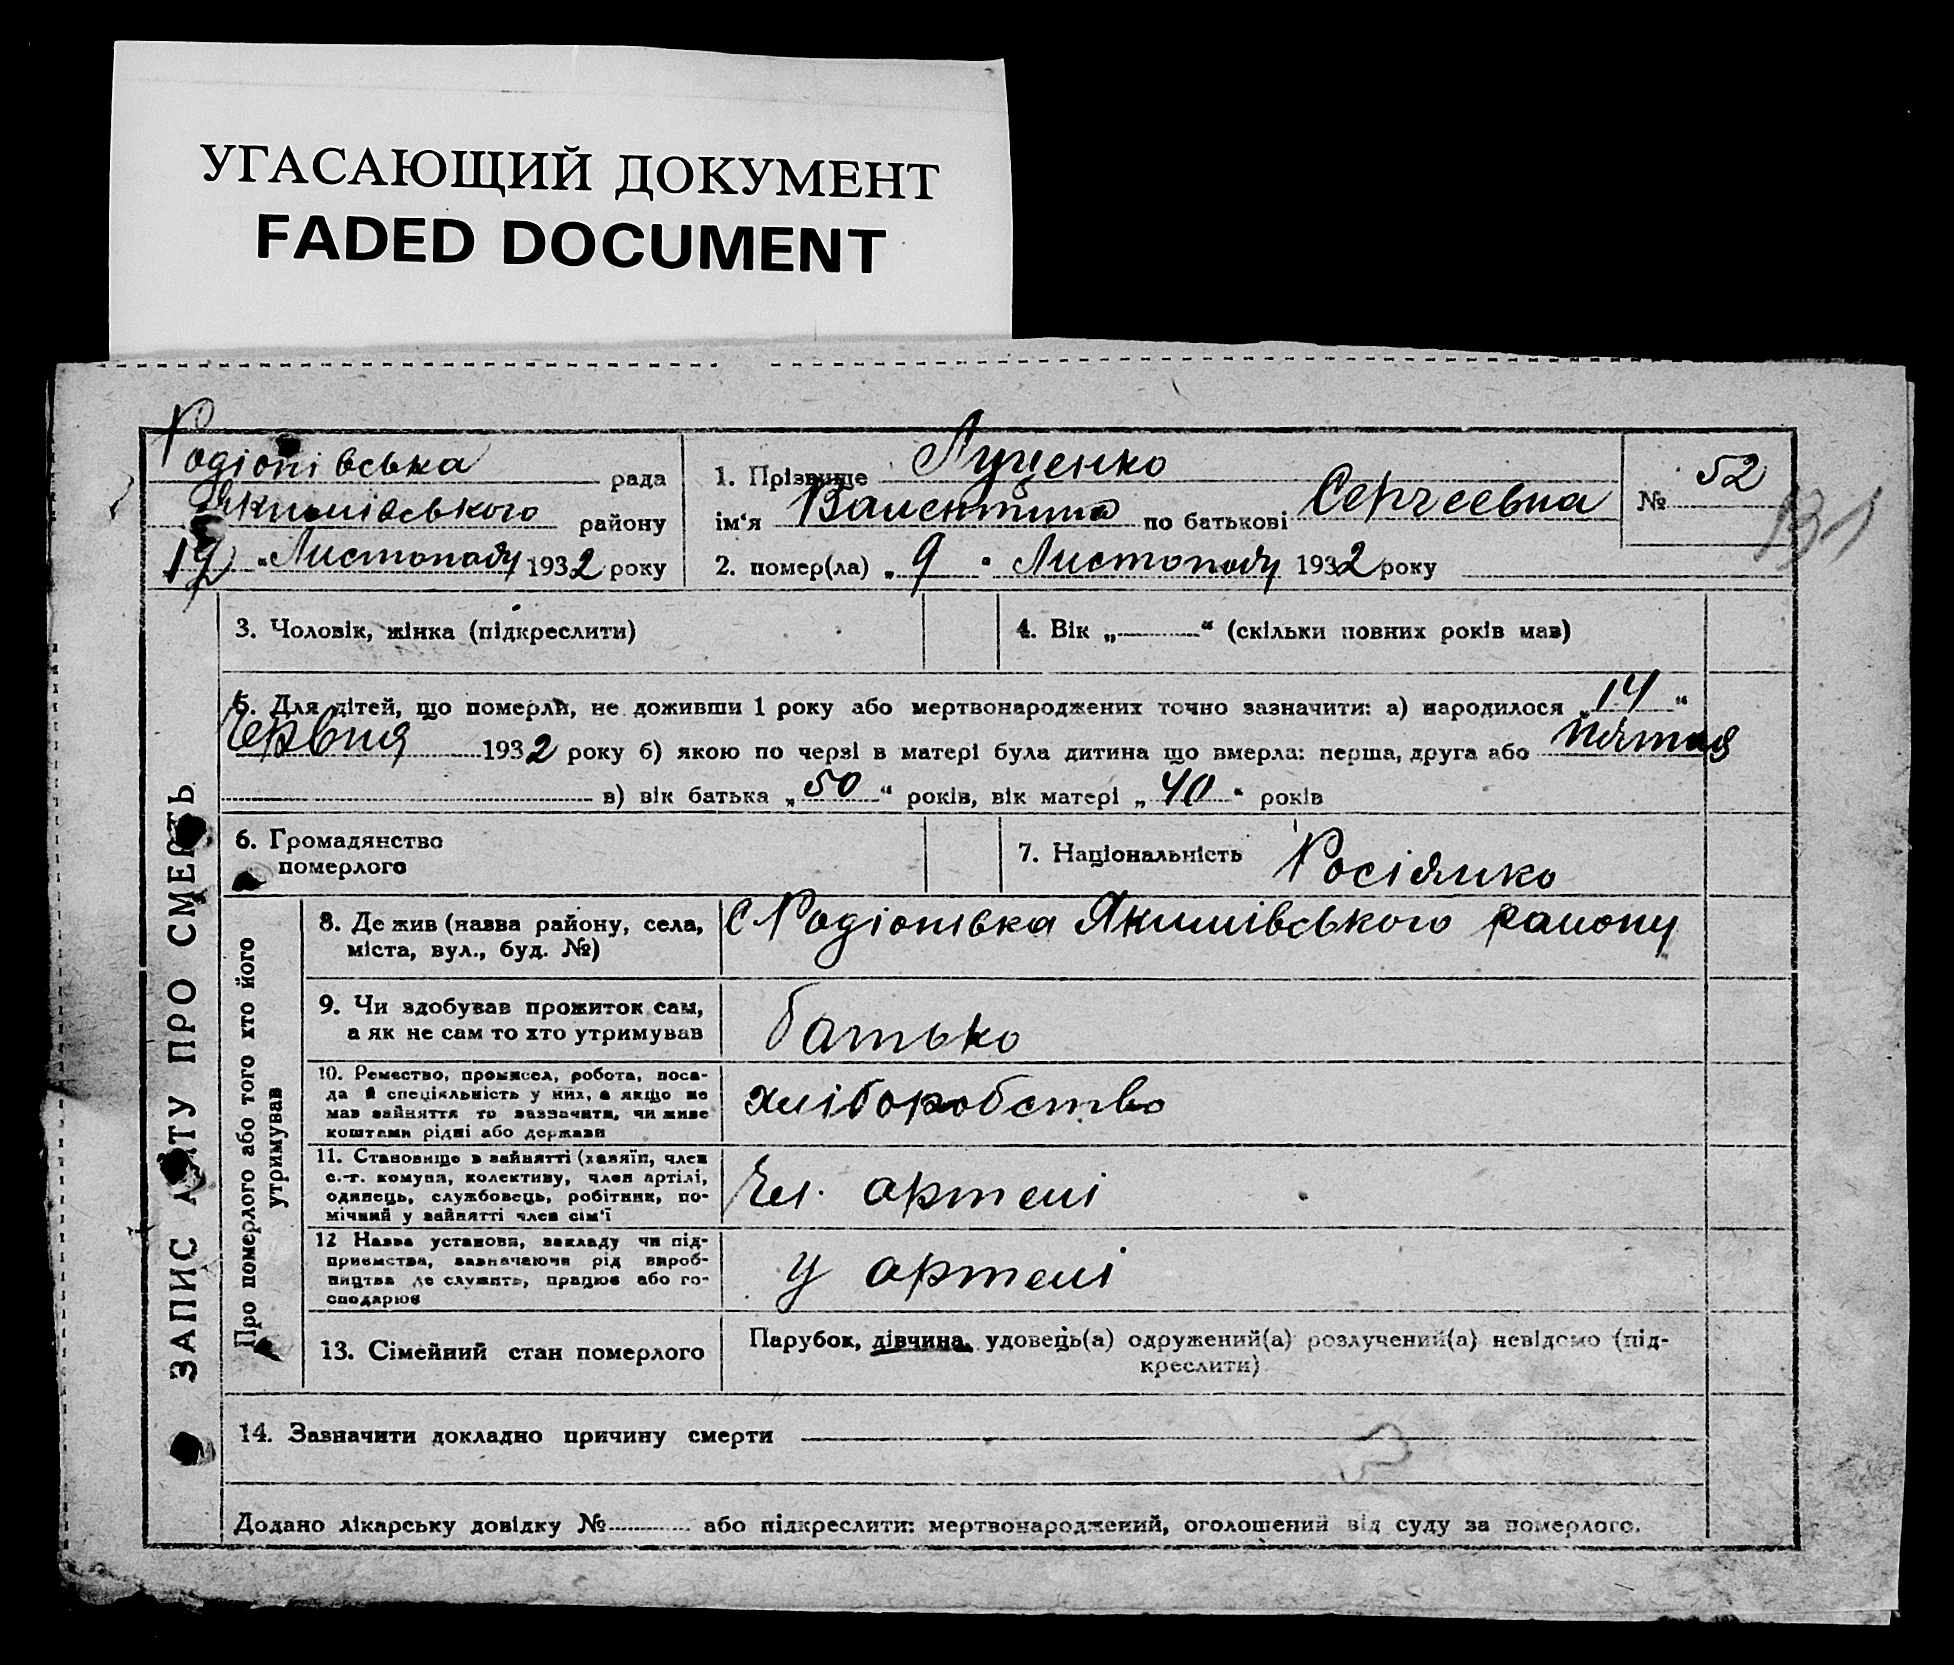 УГАСАЮЩИЙ ДОКУМЕНТ
FADED DOCUMENT
Родіонівська рада
Якимівського району
19 " Листопаду 1932 року
1. Прізвище Луценко
ім'я Валентина по батькові Сергеевна
№ 52
131
2. помер(ла) „ 9 " Листопаду 1932 року
ЗАПИС АКТУ ПРО СМЕРТЬ
3. Чоловік, жінка (підкреслити)
4. Вік „ “ (скільки повних років мав)
5. Для дітей, що померли, не доживши 1 року або мертвонароджених точно зазначити: а) народилося „ 14 “
Червня 1932 року б) якою по черзі в матері була дитина що вмерла: перша, друга або пятая
в) вік батька „ 50 “ років, вік матері „ 40 “ років
6. Громадянство
померлого
7. Національність Росіянко
Про померлого або того хто його
утримував
8. Де жив (назва району, села,
міста, вул., буд. №)
С Родіонівка Якимівського району
9. Чи здобував прожиток сам,
а як не сам то хто утримував
батько
10. Ремество, промисел, робота, поса-
да й спеціяльність у них, а якщо не
мав зайняття то зазначити, чи живе
коштами рідні або держави
хліборобство
11. Становище в зайнятті (хазяїн, член
с.-г. комуни, колективу, член артілі,
одинець, службовець, робітник, по-
мічний у зайнятті член сім'ї
Чл. артелі
12 Назва установи, закладу чи під-
приємства, зазначаючи рід вироб-
ництва де служить, працює або го-
сподарює
у артелі
13. Сімейний стан померлого
Парубок, дівчина, удовець(а) одружений(а) розлучений(а) невідомо (під-
креслити)
14. Зазначити докладно причину смерти
Додано лікарську довідку № або підкреслити: мертвонароджений, оголошений від суду за померлого.